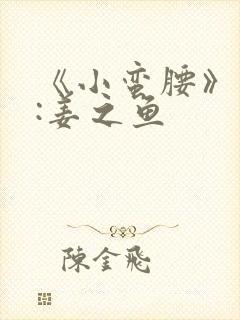 《小蛮腰》
:姜之鱼
陳金飛